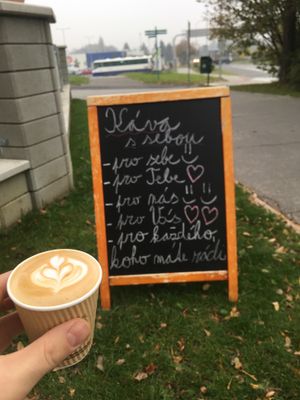 Káva
s sebou
-pro sebe
-pro Tebe
-pro nás
-pro Vás
-pro každého,
koho máte rádi